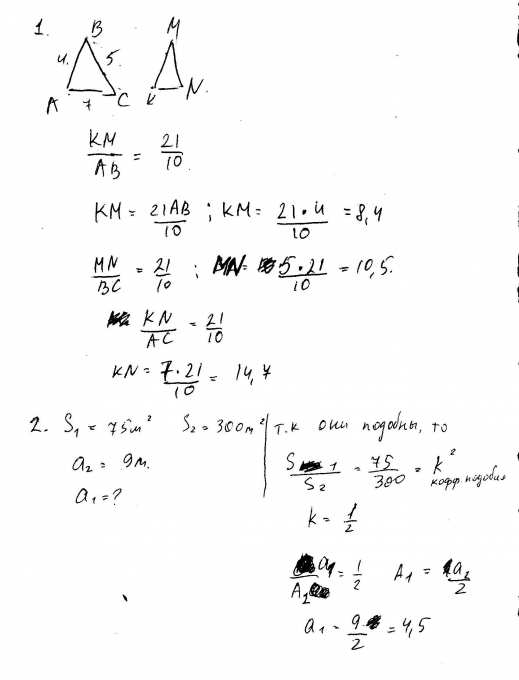 1.
B M
4 5
A 7 C K N.
KM/AB = 21/10
KM = 21AB/10 ; KM = 21·4/10 = 8,4
MN/BC = 21/10 ; MN = 5·21/10 = 10,5.
KN/AC = 21/10
KN = 7·21/10 = 14,7
2. S₁ = 75м² S₂ = 300м²
a₂ = 9м.
a₁ = ?
т.к они подобны, то
S₁/S₂ = 75/300 = k²
кофф. подобия
k = 1/2
a₁/A₂ = 1/2 A₁ = a₂/2
a₁ = 9/2 = 4,5